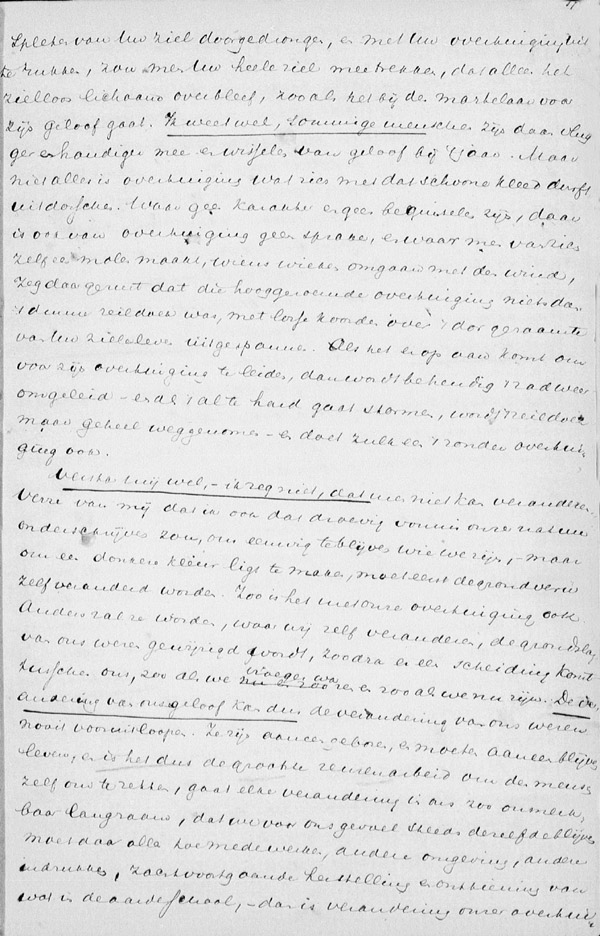 spleten van Uw ziel doorgedrongen, en met Uw overtuiging uit
te rukken, zou men Uw heele ziel meetrekken, dat alleen het
zielloos lichaam overbleef, zooals het bij den martelaar voor
zijn geloof gaat. Ik weet wel, sommige menschen zijn daar vlug
ger en handiger mee en wisselen van geloof bij 't jaar. Maar
niet alles is overtuiging wat zich met dat schoone kleed durft
uitdossen. Waar geen karakter en geen beginselen zijn, daar
is ook van overtuiging geen sprake, en waar men van zich
zelf een molen maakt, wiens wieken omgaan met den wind,
zeg daar gerust dat die hooggeroemde overtuiging niets dan
't dunne zeildoek was, met losse koorden over 't dor geraamte
van Uw zieleleven uitgespannen. Als het er op aan komt om
voor zijn overtuiging te lijden, dan wordt behendig 't rad weer
omgeleid - en als 't al te hard gaat stormen, wordt 't zeildoek
maar geheel weggenomen - en doet zulk een 't zonder overtui-
ging ook.
Versta mij wel, - ik zeg niet, dat men niet kan veranderen.
Verre van mij dat ik ook dat droevig vonnis onzer natuur
onderschrijven zou, om eeuwig te blijven wie we zijn, - maar
om een donkere kleur ligt te maken, moet eerst de grondverw
zelf veranderd worden. Zoo is het met onze overtuiging ook.
Anders zal ze worden, waar wij zelf veranderen, de grondslag
van ons wezen gewijzigd wordt, zoodra er een scheiding komt
tusschen ons, zoo als we vroeger waren en zoo als we nu zijn. De ver,
andering van ons geloof kan dus de verandering van ons wezen
nooit vooruitloopen. Ze zijn aaneen geboren, en moeten aaneen blijven
leven, en is het dus de grootste reuzenarbeid om den mensch
zelf om te zetten, gaat elke verandering in ons zoo onmerk,
baar langzaam, dat we voor ons gevoel steeds dezelfde blijven
moet daar alles toe medewerken, andere omgeving, andere
indrukken, zacht voortgaande herstelling en ontkieming van
wat in de aarde school, - dan is verandering onzer overtui,